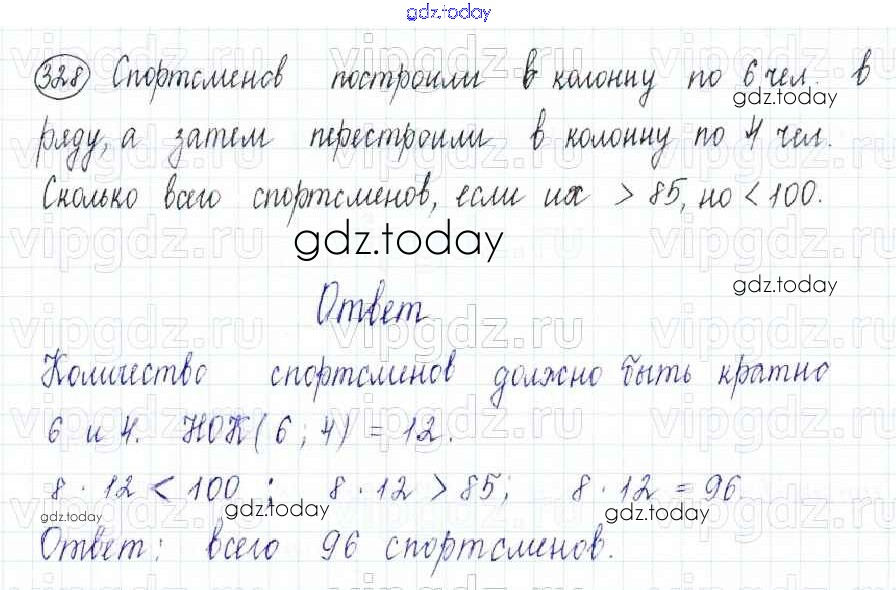 gdz.today
328 Спортсменов построили в колонну по 6 чел. в
gdz.today
ряду, а затем перестроили в колонну по 4 чел.
Сколько всего спортсменов, если их > 85, но < 100.
gdz.today
gdz.today
Ответ
Количество спортсменов должно быть кратно
6 и 4. НОК(6; 4) = 12.
8 · 12 < 100; 8 · 12 > 85; 8 · 12 = 96.
gdz.today gdz.today gdz.today
Ответ: всего 96 спортсменов.
vipgdz.ru vipgdz.ru vipgdz.ru